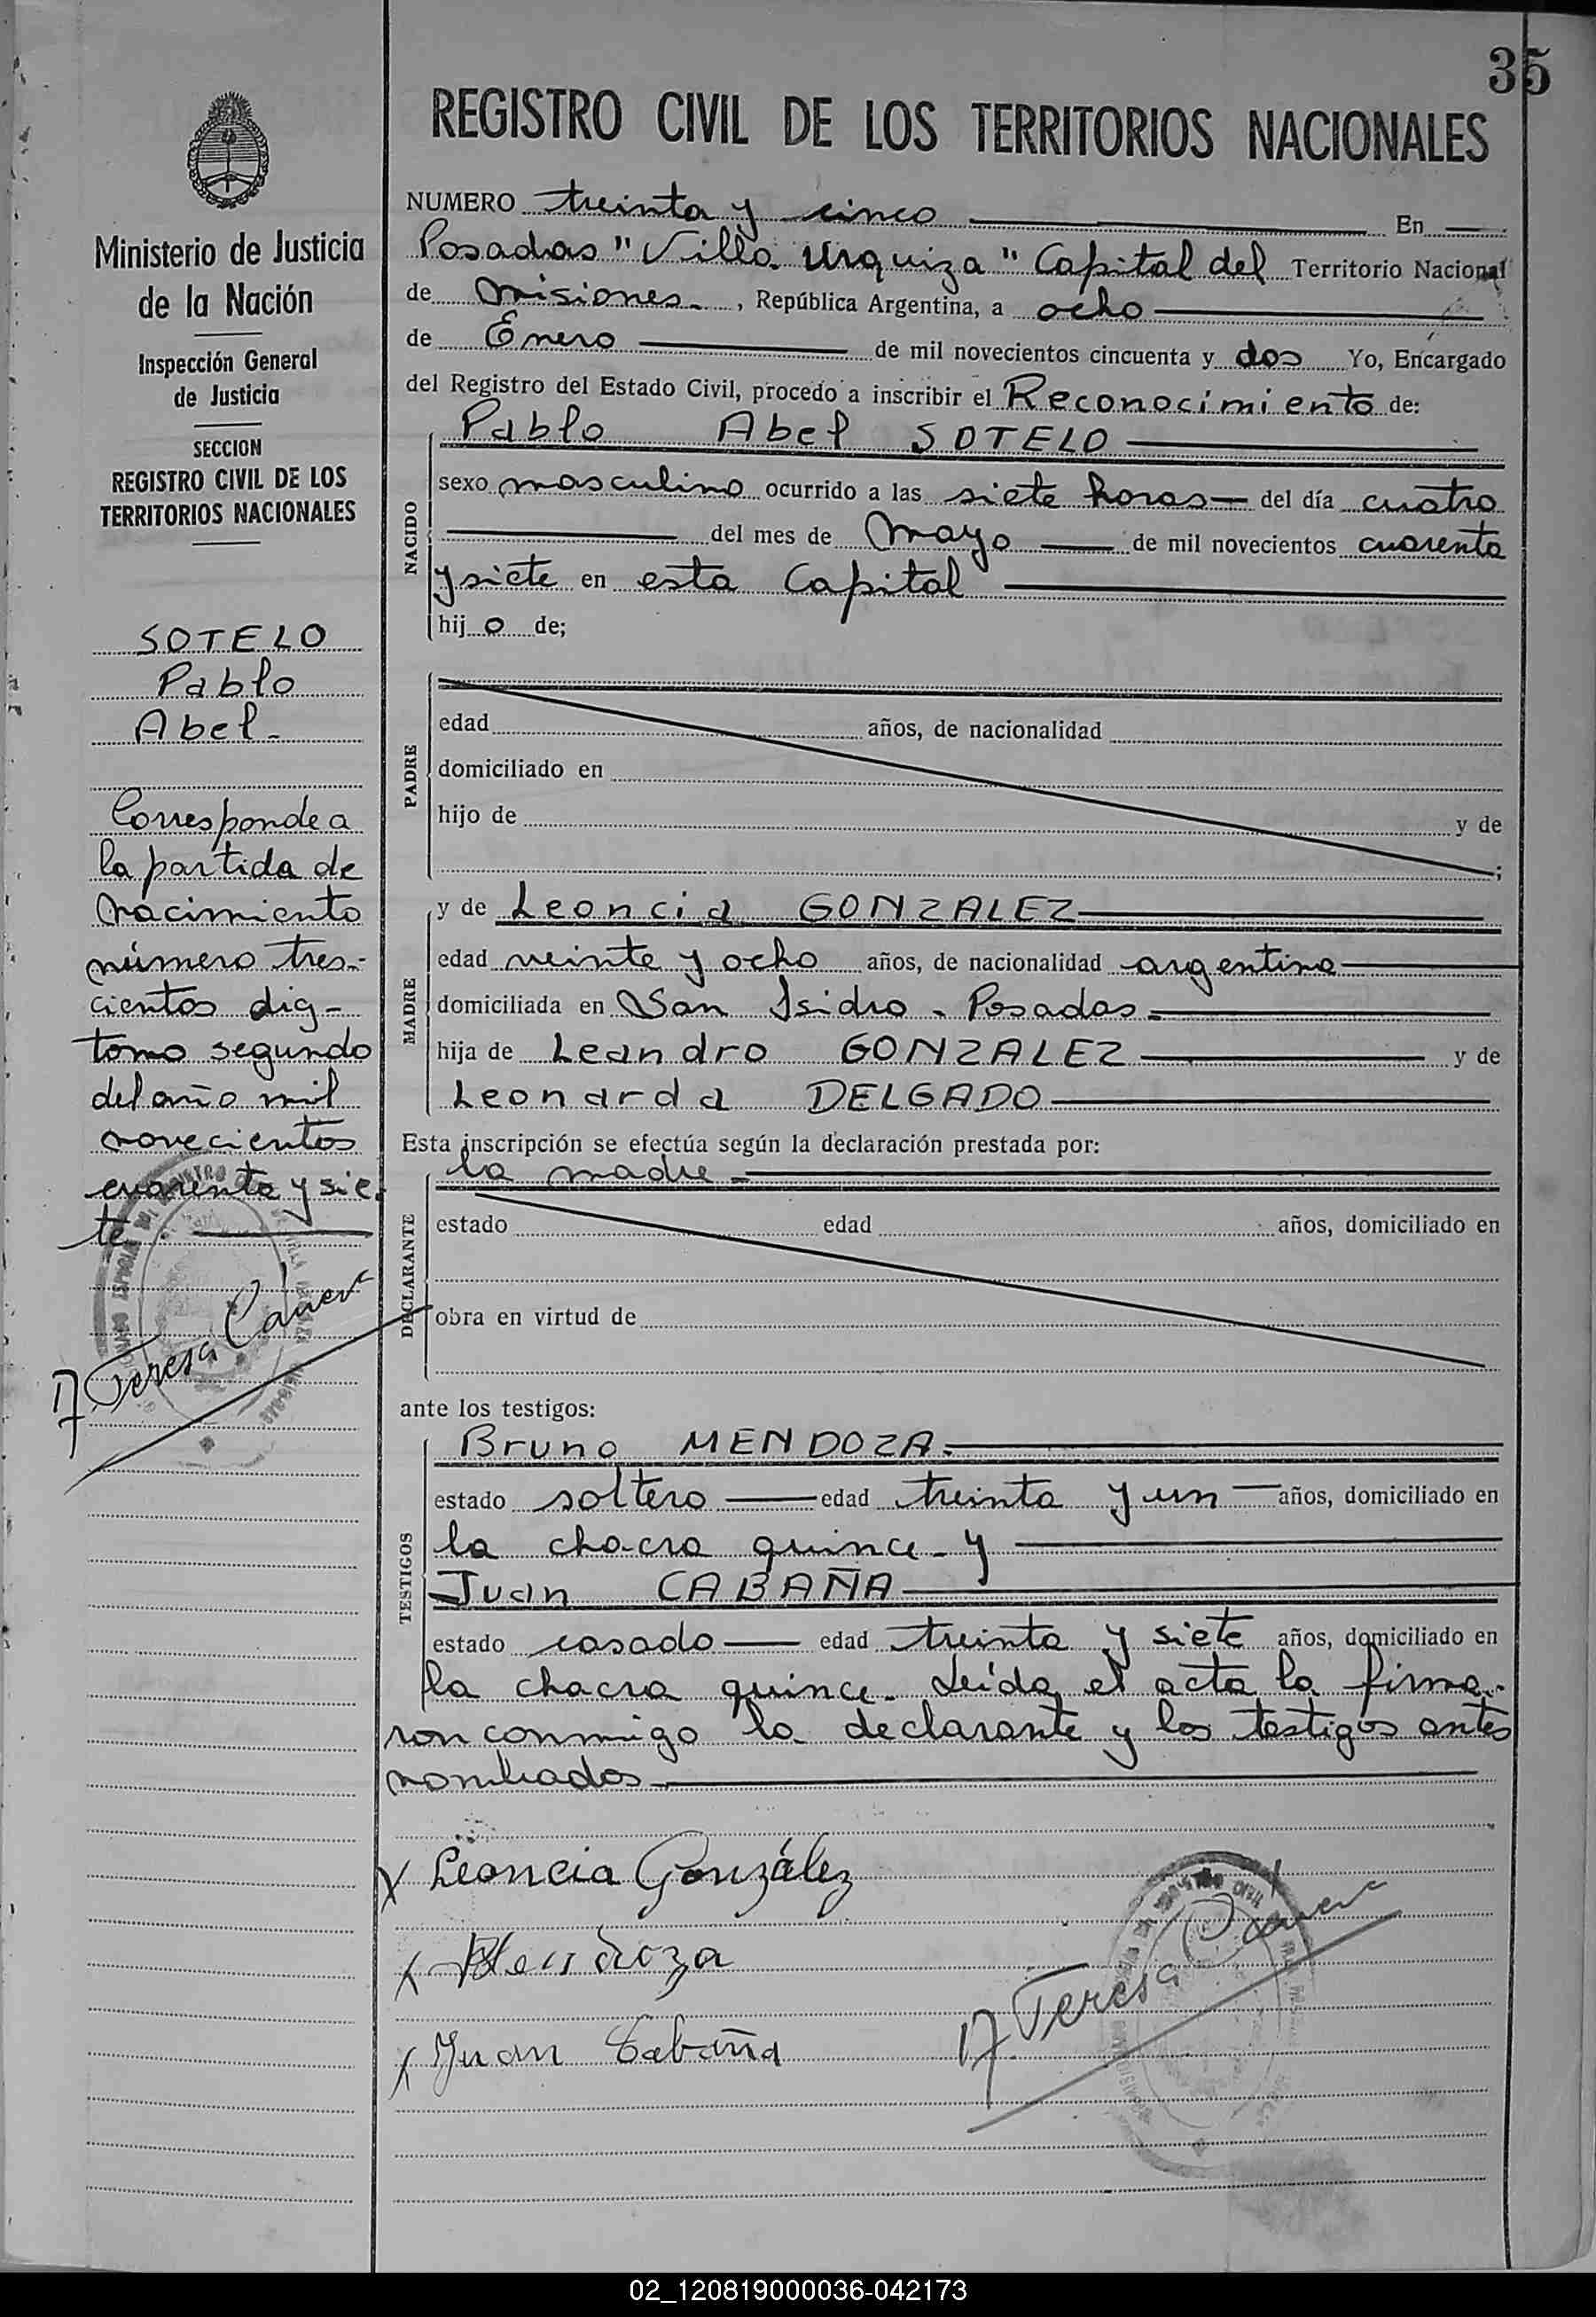 35
REGISTRO CIVIL DE LOS TERRITORIOS NACIONALES
Ministerio de Justicia
de la Nación
Inspección General
de Justicia
SECCION
REGISTRO CIVIL DE LOS
TERRITORIOS NACIONALES
SOTELO
Pablo
Abel.
Corresponde a
la partida de
nacimiento
número tres-
cientos dig-
tomo segundo
del año mil
novecientos
cuarenta y sie-
te
NUMERO treinta y cinco En
Posadas "Villa Urquiza" Capital del Territorio Nacional
de Misiones., República Argentina, a ocho
de Enero de mil novecientos cincuenta y dos Yo, Encargado
del Registro del Estado Civil, procedo a inscribir el Reconocimiento de:
Pablo Abel SOTELO
NACIDO
sexo masculino ocurrido a las siete horas del día cuatro
del mes de Mayo de mil novecientos cuarenta
y siete en esta Capital
hijo de;
PADRE
edad años, de nacionalidad
domiciliado en
hijo de y de
;
MADRE
y de Leoncia GONZALEZ
edad veinte y ocho años, de nacionalidad argentina
domiciliada en San Isidro - Posadas.
hija de Leandro GONZALEZ y de
Leonarda DELGADO
Esta inscripción se efectúa según la declaración prestada por:
la madre
DECLARANTE
estado edad años, domiciliado en
obra en virtud de
ante los testigos:
TESTIGOS
Bruno MENDOZA.
estado soltero edad treinta y un años, domiciliado en
la chacra quince - y
Juan CABAÑA
estado casado edad treinta y siete años, domiciliado en
la chacra quince. Leída el acta la firma-
ron conmigo la declarante y los testigos antes
nombrados
Leoncia González
Mendoza
Juan Cabaña
Teresa
02_120819000036-042173